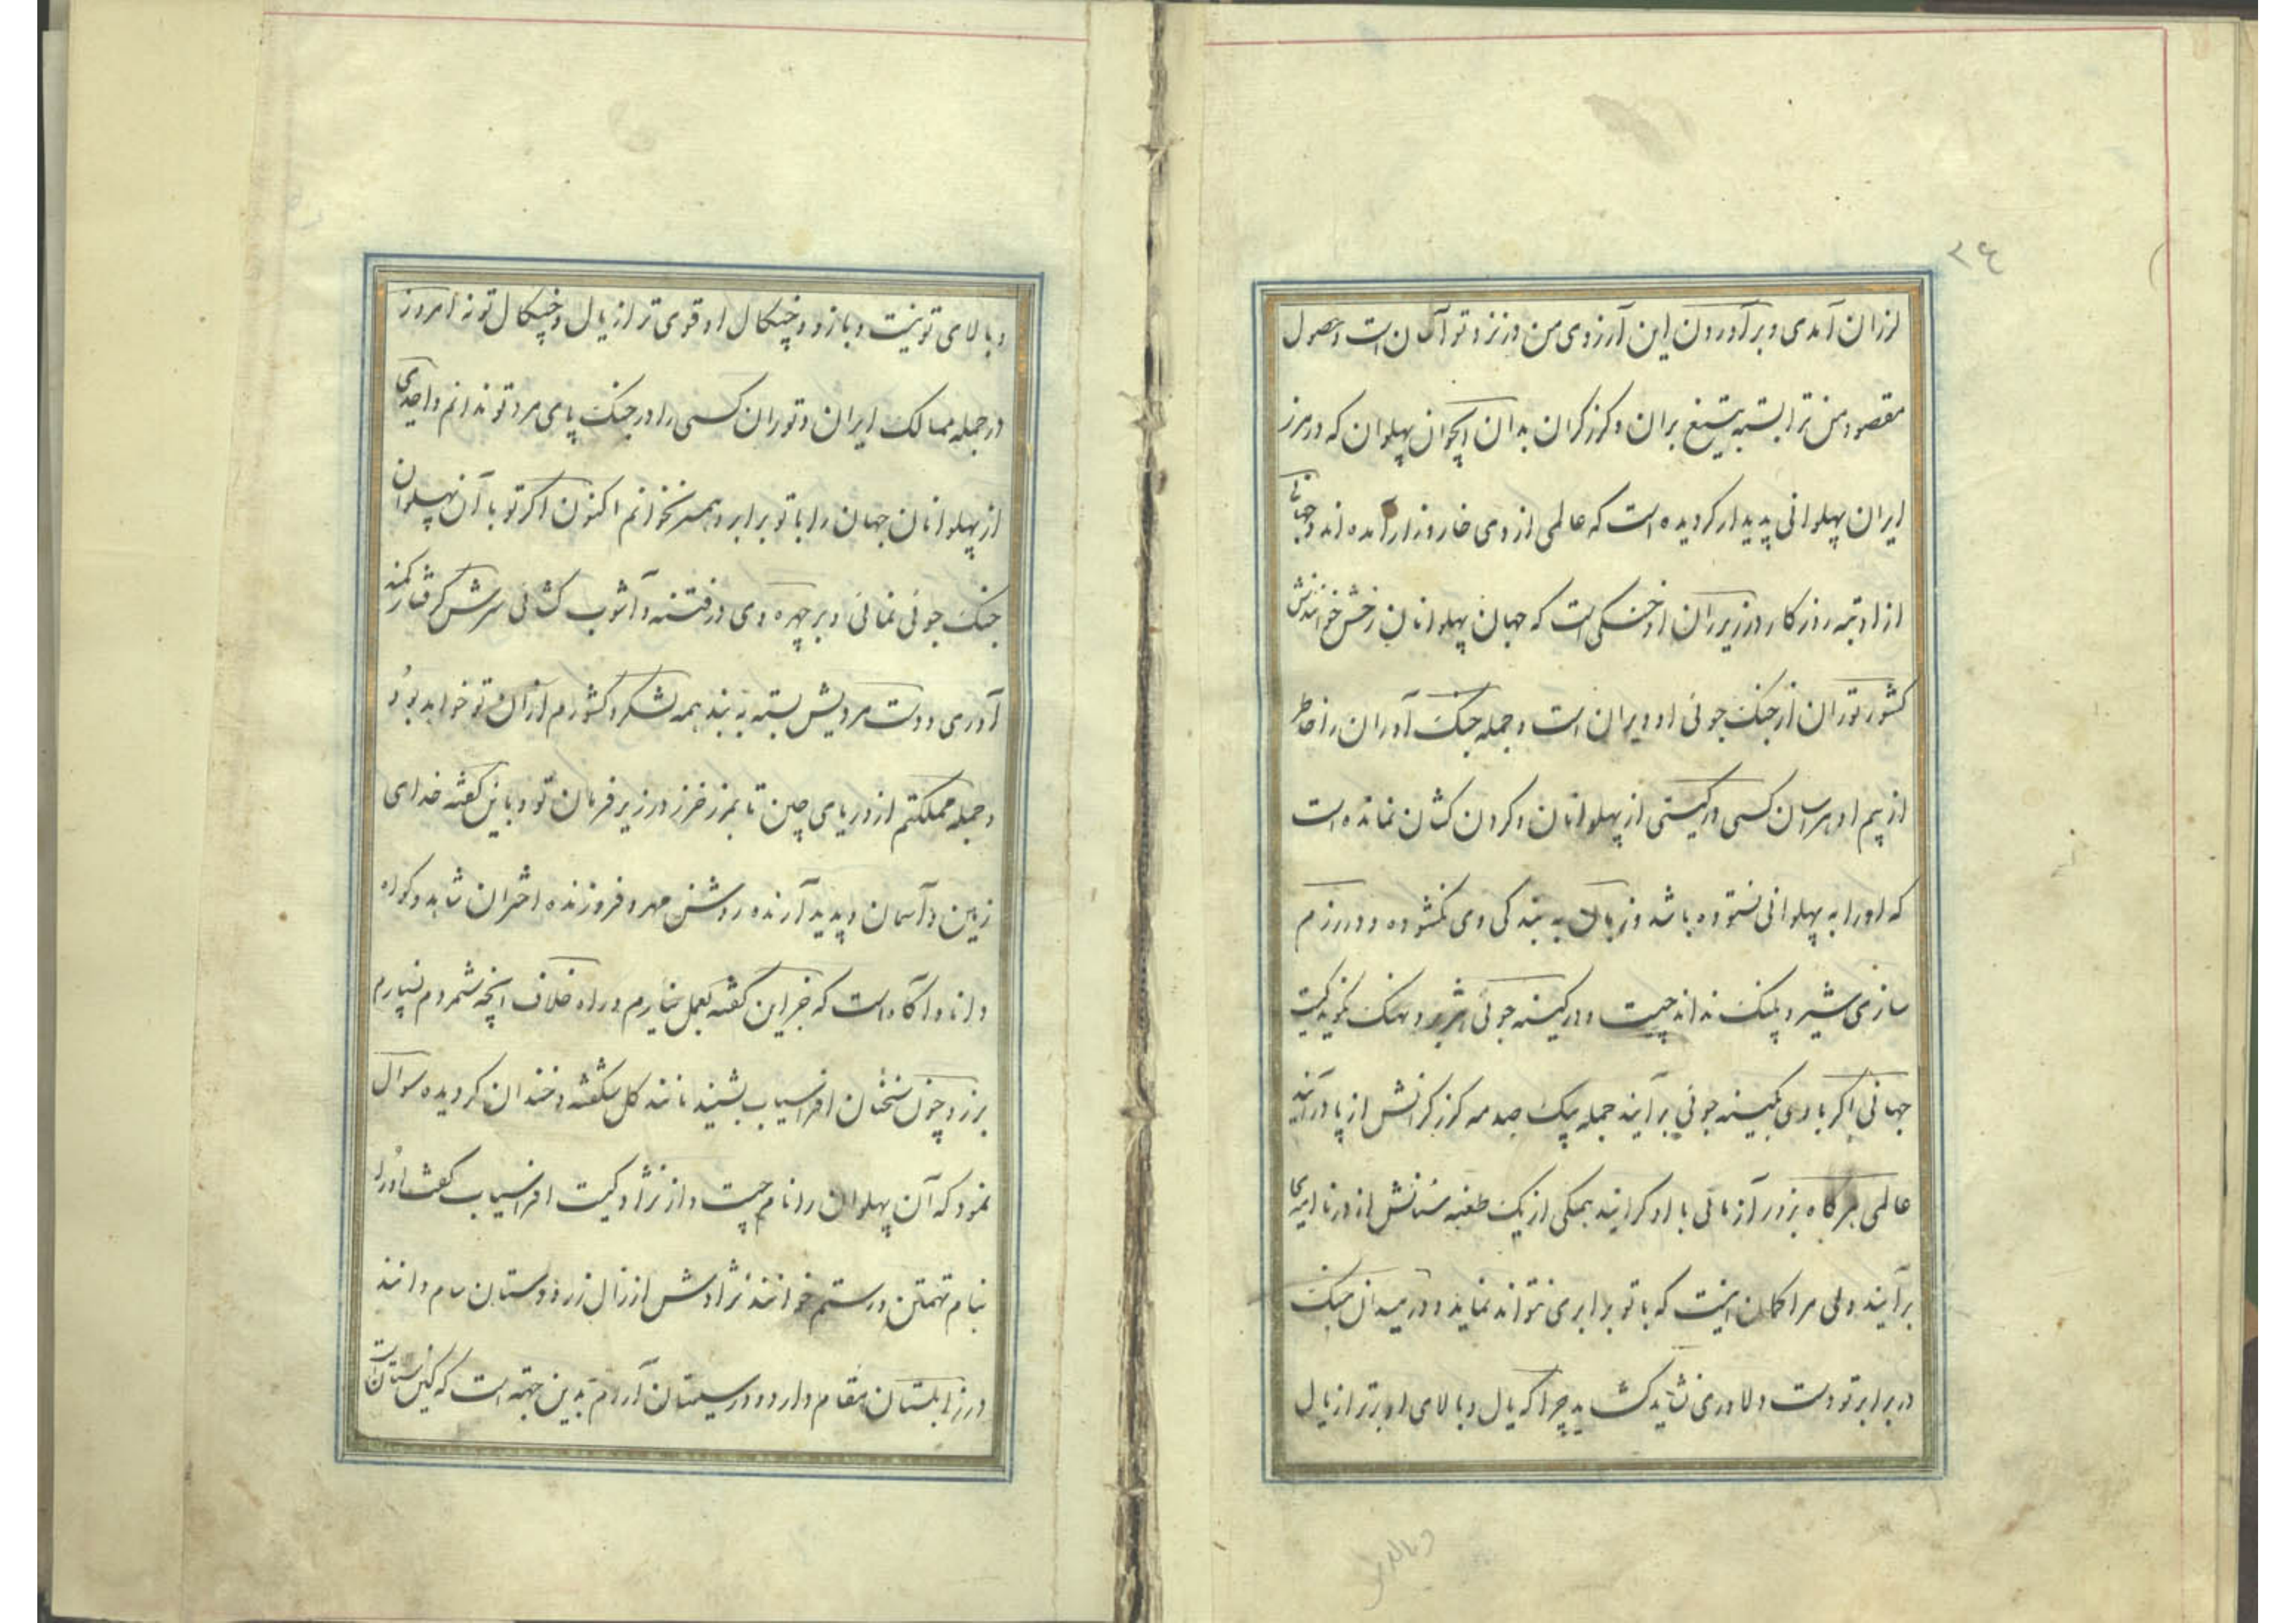 ۲۴
لرزان آمدی و برآوردن این آرزوی من در نزد تو آسان است و حصول
مقصود من ترا بسته بتیغ بران و کرز کران بدان ایجوان پهلوان که در مرز
ایران پهلوانی پدیدار کردیده است که عالمی از وی خار و زار آمده اند و جهانی
از او تبه روزکار و در زیر ران او خنکی است که جهان پهلوانان رخش خوانندش
کشور توران از جنک جوئی او ویران است و جمله جنک آوران را خاطر
از بیم او هراسان کسی در کیتی از پهلوانان و کردن کشان نمانده است
که او را به پهلوانی نستوده باشد و زبان به بندکی وی نکشوده و در رزم
سازی شیر و پلنک نداند چیست و در کینه جوئی هژبر و نهنک نکوید کیست
جهانی اکر با وی بکینه جوئی برآیند جمله بیک صدمه کرز کرانش از پا درآیند
عالمی هرکاه بزور آزمائی با او کرایند همکی از یک طعنه سنانش از در نا
برآیند ولی مرا کمان اینست که با تو برابری نتواند نماید و در میدان جنک
در برابر تو دست دلاوری نشاید کشاید چرا که یال و بالای او برتر از یال
وبالای
و بالای تو نیست و بازو و چنکال او قوی تر از یال و چنکال تو نه امروز
در جمله ممالک ایران و توران کسی را در جنک پای مرد تو ندانم و احدی
از پهلوانان جهان را با تو برابر و همسر نخوانم اکنون اکر تو با آن پهلوان
جنک جوئی نمائی و بر چهره وی در فتنه و آشوب کشائی سرش کرفتار کمند
آوری و دست مردیش بسته به بند همه لشکر و کشورم از آن تو خواهد بود
و جمله مملکتم از دریای چین تا بمرز خزر در زیر فرمان تو و باین کفته خدای
زمین و آسمان و پدید آرنده روشن مهر و فروزنده اختران شاهد و کواه
و دانا و آکاه است که جز این کفته بعمل نیارم و راه خلاف آنچه شمردم نسپارم
برزو چون سخنان افراسیاب بشنید مانند کل شکفته و خندان کردیده سوال
نمود که آن پهلوان را نام چیست و از نژاد کیست افراسیاب کفت او را
بنام تهمتن و رستم خوانند نژادش از زال زر و دستان سام دانند
در زابلستان مقام دارد و در سیستان آرام بدین جهته است که